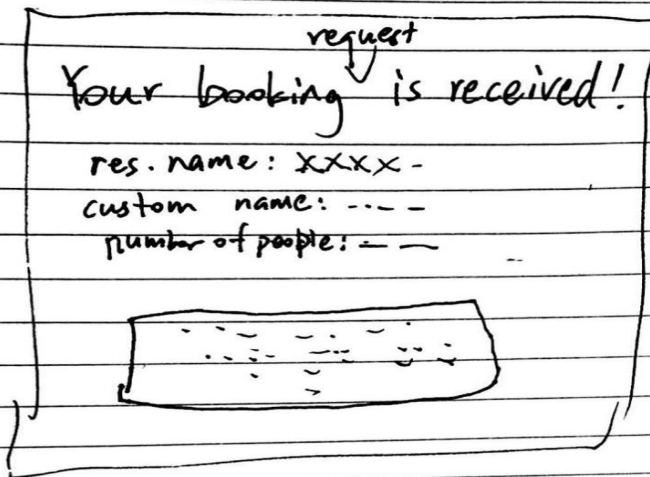 Your booking request is received!
res. name: xxxx -
custom name: -·- -
number of people: - -